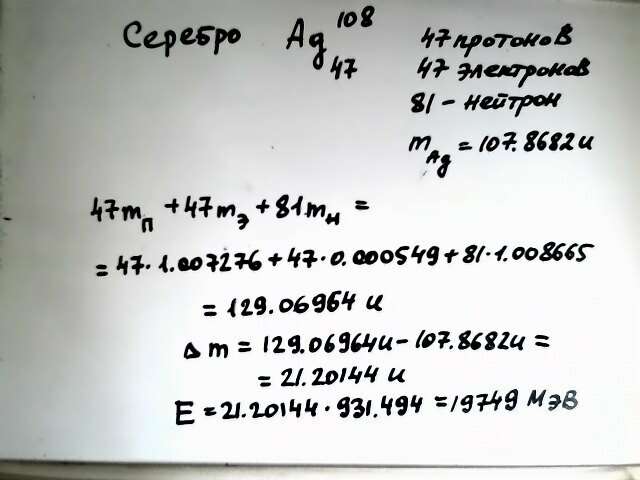 Серебро Ag 108 47
47 протонов
47 электронов
81 - нейтрон
m Ag = 107.8682 u
47m п + 47m э + 81m н =
= 47 · 1.007276 + 47 · 0.000549 + 81 · 1.008665
= 129.06964 u
Δm = 129.06964u - 107.8682u =
= 21.20144 u
E = 21.20144 · 931.494 = 19749 МэВ